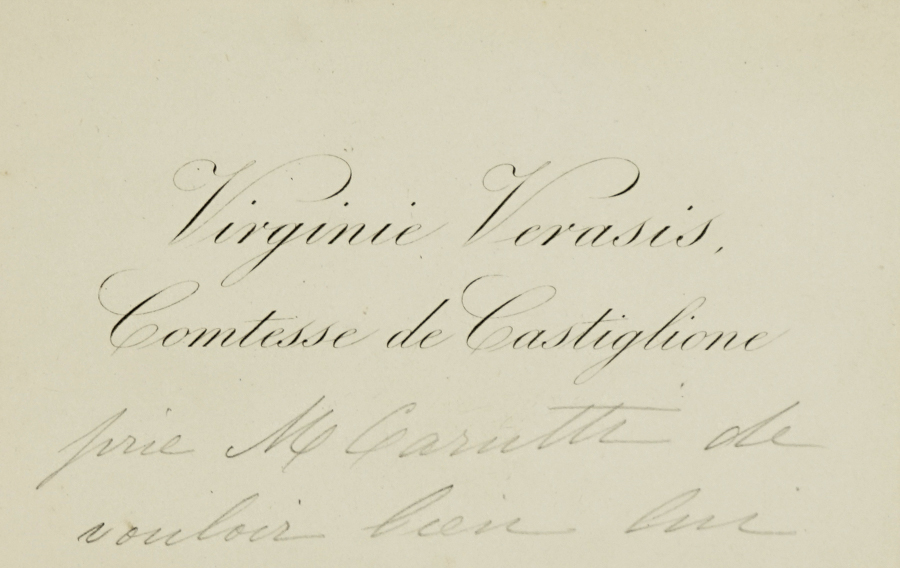 Virginie Verasis,
Comtesse de Castiglione
prie M Carutti de
vouloir bien lui